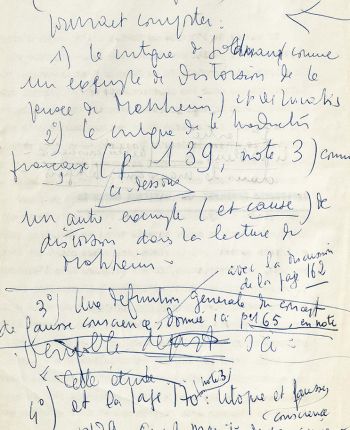 pourrait comporter :
1) la critique de Goldmann comme
un exemple de distorsion de la
pensée de Mannheim) et de Lukacs
2) la critique de la traduction
française (p 139, note 3) comme
ci-dessous
un autre exemple (et cause) de
distorsion dans la lecture de
Mannheim.
avec la discussion
de la page 162
3°) Une définition générale du concept
de fausse conscience, donnée ici p 165, en note
Véritable départ
Cette étude
4°) et la page 170 (note 3) : utopie et fausse
conscience